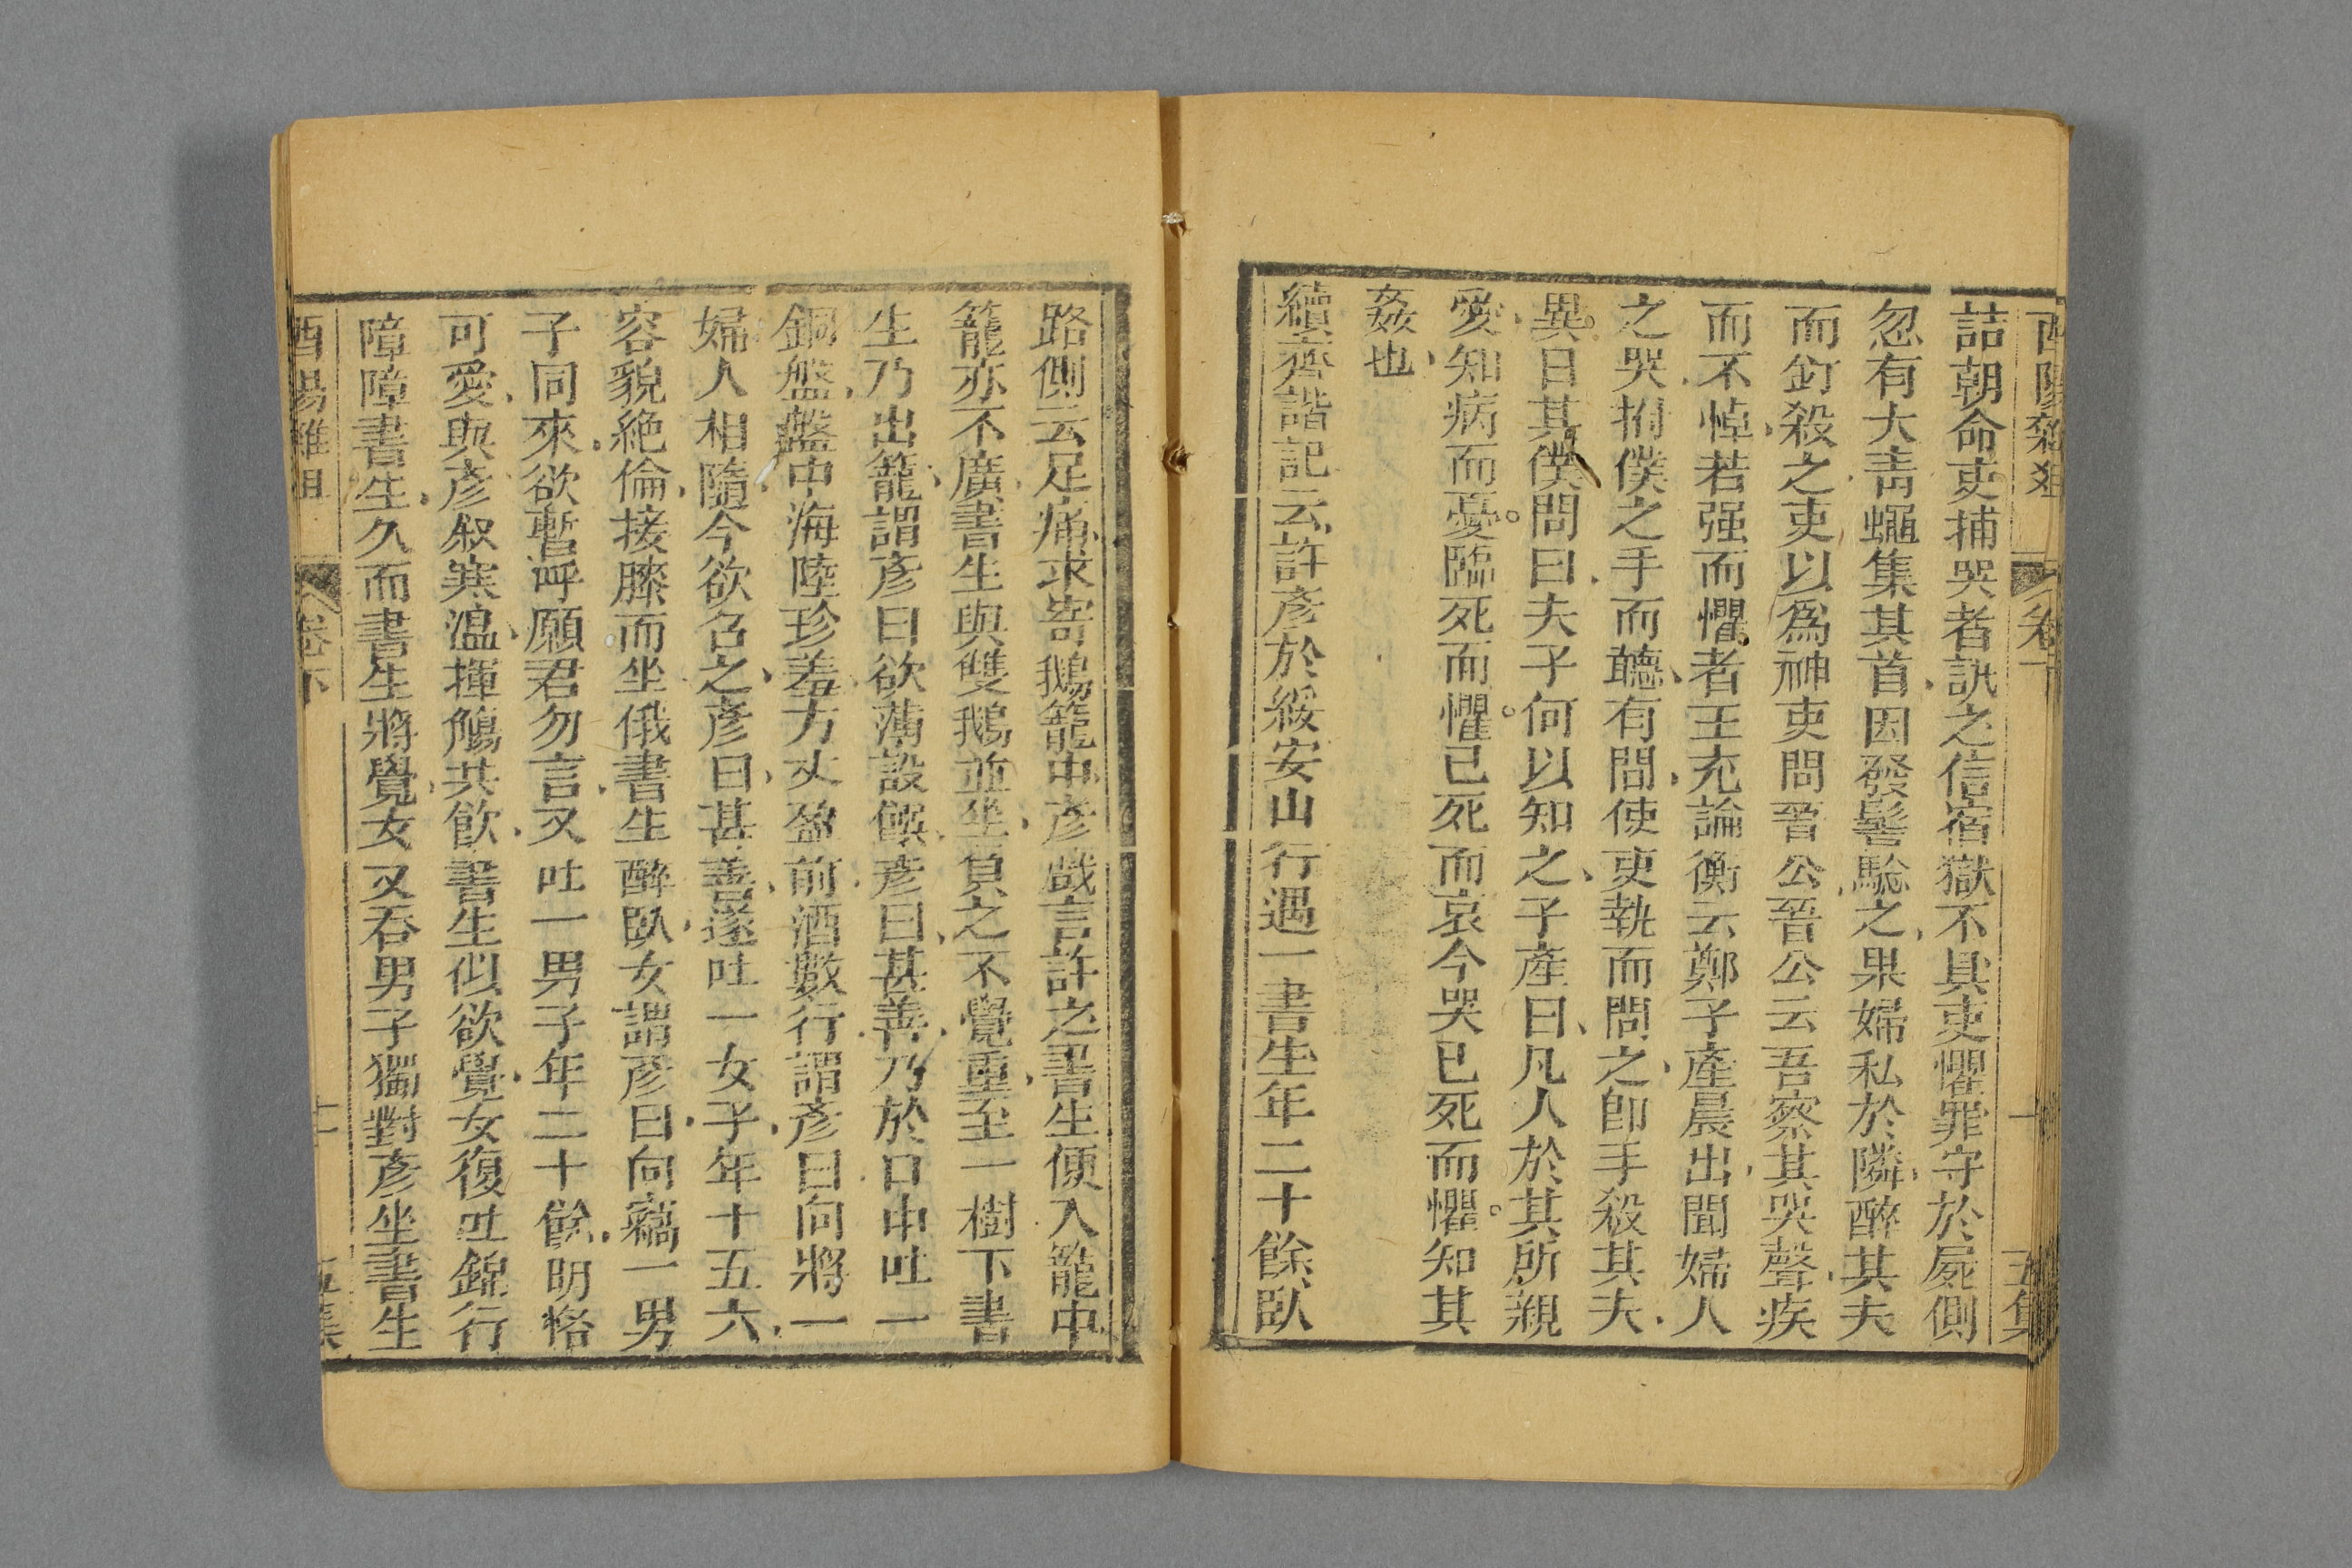 酉陽雜俎 卷下 五集
詰朝命吏捕哭者訊之信宿獄不具吏懼罪守於屍側
忽有大青蠅集其首因發髻驗之果婦私於隣醉其夫
而釘殺之吏以爲神吏問晉公晉公云吾察其哭聲疾
而不悼若强而懼者王充論衡云鄭子產晨出聞婦人
之哭拊僕之手而聽有問使吏執而問之卽手殺其夫
異日其僕問曰夫子何以知之子產曰凡人於其所親
愛知病而憂臨死而懼已死而哀今哭已死而懼知其
姦也
續齊諧記云許彥於綏安山行遇一書生年二十餘臥
路側云足痛求寄鵝籠中彥戲言許之書生便入籠中
籠亦不廣書生與雙鵝並坐負之不覺重至一樹下書
生乃出籠謂彥曰欲薄設饌彥曰甚善乃於口中吐一
銅盤盤中海陸珍羞方丈盈前酒數行謂彥曰向將一
婦人相隨今欲召之彥曰甚善遂吐一女子年十五六
容貌絕倫接膝而坐俄書生醉臥女謂彥曰向竊一男
子同來欲暫呼願君勿言又吐一男子年二十餘明恪
可愛與彥叙寒溫揮觴共飮書生似欲覺女復吐錦行
障障書生久而書生將覺女又吞男子獨對彥坐書生
酉昜雜俎 卷下 十一 五集